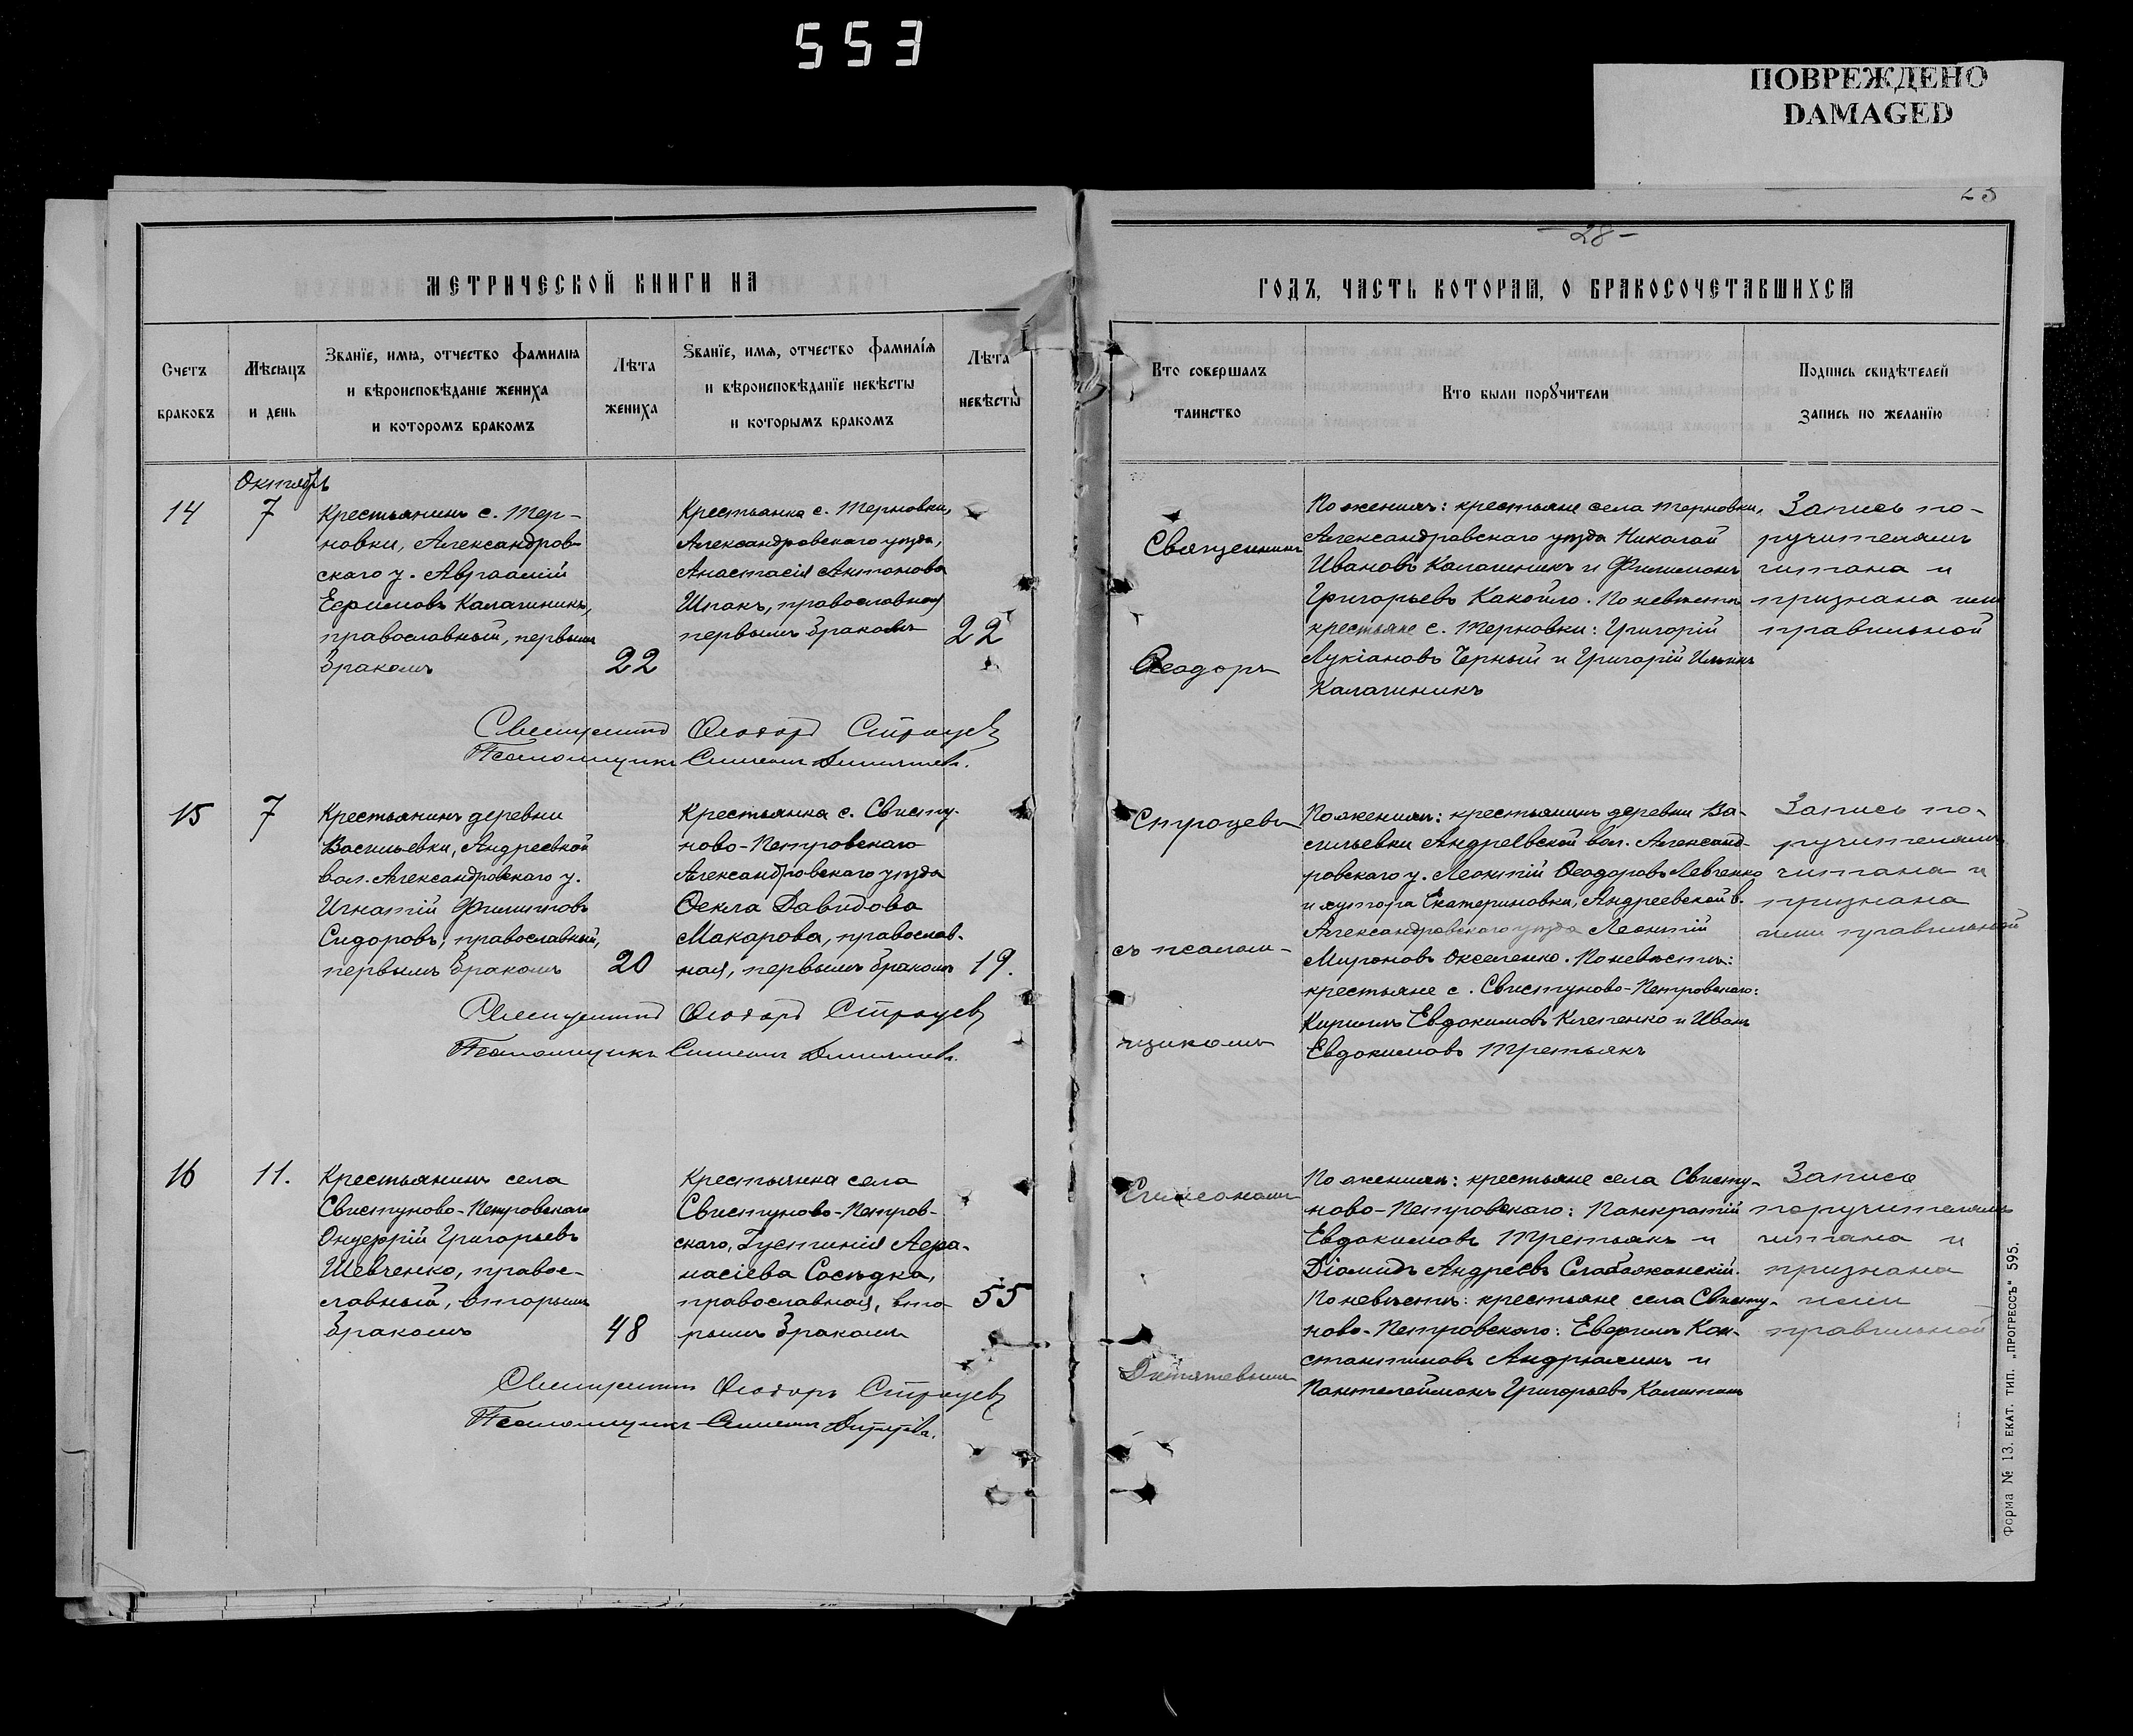 553
ПОВРЕЖДЕНО
DAMAGED
28
МЕТРИЧЕСКОЙ КНИГИ НА
ГОДЪ, ЧАСТЬ КОТОРАЯ, О БРАКОСОЧЕТАВШИХСЯ
Счетъ
браковъ
Мѣсяцъ
и день
Званїе, имя, отчество фамилия
и вѣроисповѣданіе жениха
и которомъ бракомъ
Лѣта
жениха
Званїе, имя, отчество фамилія
и вѣроисповѣданїе невѣсты
и которымъ бракомъ
Лѣта
невѣсты
Кто совершалъ
таинство
Кто были поручители
Подпись свидѣтелей
запись по желанїю
Октябрь
14
7
Крестьянинъ с. Тер-
новки, Александров-
скаго у. Авраамій
Ефимовъ Калагинникъ,
православный, первымъ
бракомъ
22
Крестьянка с. Терновки,
Александровскаго уѣзда,
Анастасія Антонова
Шпакъ, православная
первымъ бракомъ
22
Священникъ Ѳеодоръ Строцевъ
Псаломщикъ Симеонъ
По женихѣ: крестьяне села Терновки,
Александровскаго уѣзда Николай
Ивановъ Калагинникъ и Филимонъ
Григорьевъ Какойло. По невѣстѣ
крестьяне с. Терновки: Григорій
Лукіановъ Черный и Григорій Ильинъ
Калагинникъ
Запись по-
ручителямъ
читана и
признана ими
правильной
15
7
Крестьянинъ деревни
Васильевки, Андреевской
вол. Александровскаго у.
Игнатій Филипповъ
Сидоровъ, православный,
первымъ бракомъ
20
Крестьянка с. Свисту-
ново-Петровскаго
Александровскаго уѣзда
Ѳекла Давидова
Макарова, православ-
ная, первымъ бракомъ
19.
Священникъ Ѳеодоръ Строцевъ
Псаломщикъ Симеонъ
По женихѣ: крестьянинъ деревни Ва-
сильевки Андреевской вол. Александ-
ровскаго у. Леонтій Ѳеодоровъ Левченко
и хутора Екатериновки, Андреевской в.
Александровскаго уѣзда Леонтій
Мироновъ Окселенко. По невѣстѣ:
крестьяне с. Свистуново-Петровскаго:
Кириллъ Евдокимовъ Клепенко и Иванъ
Евдокимовъ Третьякъ
Запись по-
ручителямъ
читана и
признана
ими правильной
16
11.
Крестьянинъ села
Свистуново-Петровскаго
Онуфрій Григорьевъ
Шевченко, право-
славный, вторымъ
бракомъ
48
Крестьянка села
Свистуново-Петров-
скаго, Іустинія Афа-
насіева Сосѣдка,
православная, вто-
рымъ бракомъ
55
Священникъ Ѳеодоръ Строцевъ
Псаломщикъ Симеонъ
По женихѣ: крестьяне села Свисту-
ново-Петровскаго: Панкратій
Евдокимовъ Третьякъ и
Діомидъ Андреевъ Слабожанскій.
По невѣстѣ: крестьяне села Свисту-
ново-Петровскаго: Евфимъ Кон-
стантиновъ Андрюхинъ и
Пантелеймонъ Григорьевъ
Запись
поручителямъ
читана и
признана
ими
правильной
Священникъ
Ѳеодоръ
Строцевъ
съ псалом-
щикомъ
Симеономъ
Дитятевымъ
Форма № 13. ЕКАТ. ТИП. „ПРОГРЕССЪ“ 595.